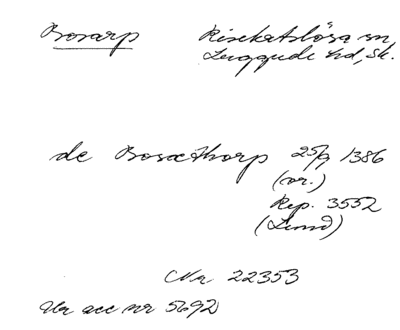 Bosarp Risekatslösa sn,
Luggude hd, Sk.
de Bosæthorp 25/9 1386
(or.)
Rep. 3552
(Lund)
Nr 22353
Ur acc nr 5692